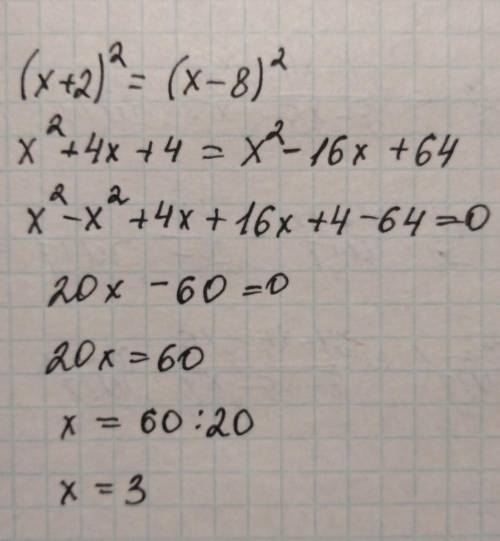 (x+2)² = (x-8)²
x² + 4x + 4 = x² - 16x + 64
x² - x² + 4x + 16x + 4 - 64 = 0
20x - 60 = 0
20x = 60
x = 60 : 20
x = 3